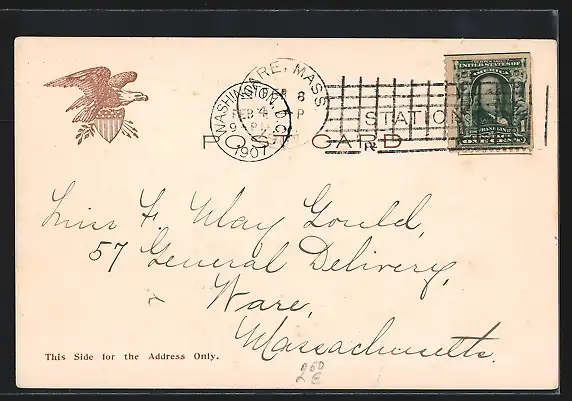 WARE, MASS
WASHINGTON, D.C.
FEB 4
9 - P
1907
8
P
STATION
UNITED STATES OF
AMERICA
ONE CENT
POST CARD
Miss F. May Gould,
57 General Delivery,
Ware,
Massachusetts.
This Side for the Address Only.